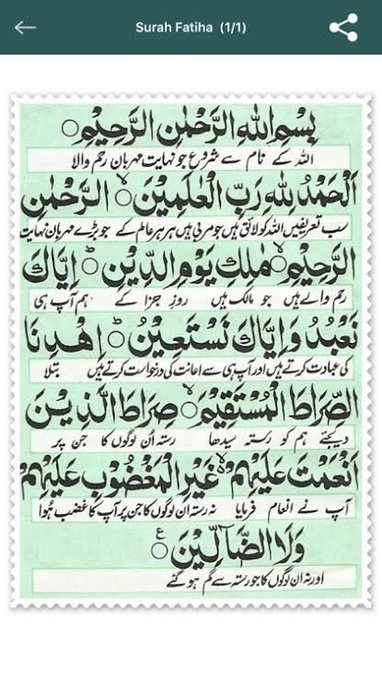 Surah Fatiha (1/1)
بِسْمِ اللهِ الرَّحْمٰنِ الرَّحِيْمِ ○
اللہ کے نام سے شروع جو نہایت مہربان رحم والا
اَلْحَمْدُ لِلّٰهِ رَبِّ الْعٰلَمِيْنَ ○ الرَّحْمٰنِ
سب تعریفیں اللہ کو لائق ہیں جو مربی ہیں ہر ہر عالم کے جو بڑے مہربان نہایت
الرَّحِيْمِ ○ مٰلِكِ يَوْمِ الدِّيْنِ ○ اِيَّاكَ
رحم والے ہیں جو مالک ہیں روز جزا کے ہم آپ ہی
نَعْبُدُ وَ اِيَّاكَ نَسْتَعِيْنُ ○ اِهْدِنَا
کی عبادت کرتے ہیں اور آپ ہی سے اعانت کی درخواست کرتے ہیں بتلا
الصِّرَاطَ الْمُسْتَقِيْمَ ○ صِرَاطَ الَّذِيْنَ
دیجئے ہم کو رستہ سیدھا رستہ اُن لوگوں کا جن پر
اَنْعَمْتَ عَلَيْهِمْ ○ غَيْرِ الْمَغْضُوْبِ عَلَيْهِمْ
آپ نے انعام فرمایا نہ رستہ ان لوگوں کا جن پر آپ کا غضب ہُوا
وَلَا الضَّآلِّيْنَ ○ ع
اور نہ ان لوگوں کا جو رستہ سے گم ہو گئے